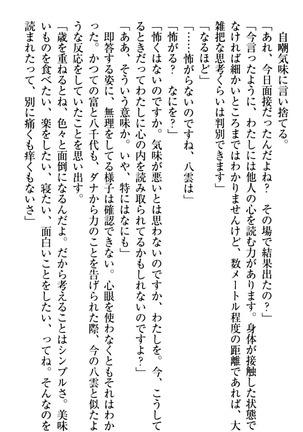 自嘲気味に言い捨てる。
「あれ、今日面接だったんだよね？　その場で結果出たの？」
「今言ったように、わたしには他人の心を読む力があります。身体が接触した状態で
なければ細かいところまではわかりませんけど、数メートル程度の距離であれば、大
雑把な思考くらいは判別できます」
「なるほど」
「……怖がらないのですね、八雲は」
「怖がる？　なにを？」
「怖くはないのですか。気味が悪いとは思わないのですか、わたしを。今、こうして
るときだってわたしに心の内を読み取られてるかもしれないんですよ」
「ああ、そういう意味か。いや、特にはなにも」
即答する姿に、無理をしてる様子は確認できない。心眼を使わなくともそれはわか
った。かつての富と八千代も、ダナから力のことを告げられた際、今の八雲と似たよ
うな反応をしていたことを思い出す。
「歳を重ねるとね、色々と面倒になるんだよ。だから考えることはシンプルさ。美味
いものを食べたい、楽をしたい、寝たい、面白いことをしたい、ってね。そんなのを
読まれたって、別に痛くも痒くもないさ」